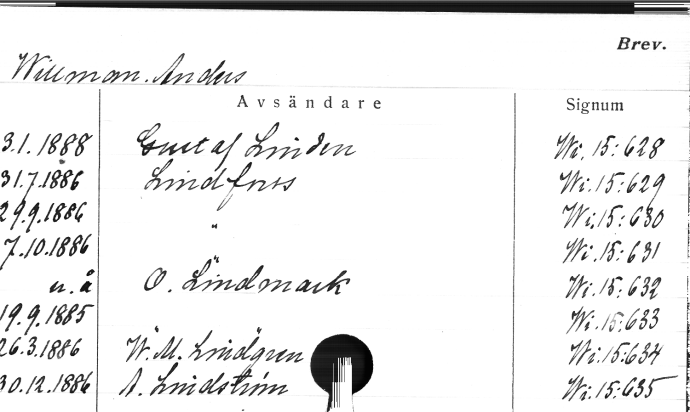 Brev.
Willman. Anders
Avsändare Signum
3.1.1888 Gustaf Linden Wi.15:628
31.7.1886 Lindforss Wi.15:629
29.9.1886 " Wi.15:630
7.10.1886 " Wi.15:631
u.å O. Lindmark Wi.15:632
19.9.1885 " Wi.15:633
26.3.1886 W.M. Lindgren Wi.15:634
30.12.1886 A. Lindström Wi.15:635